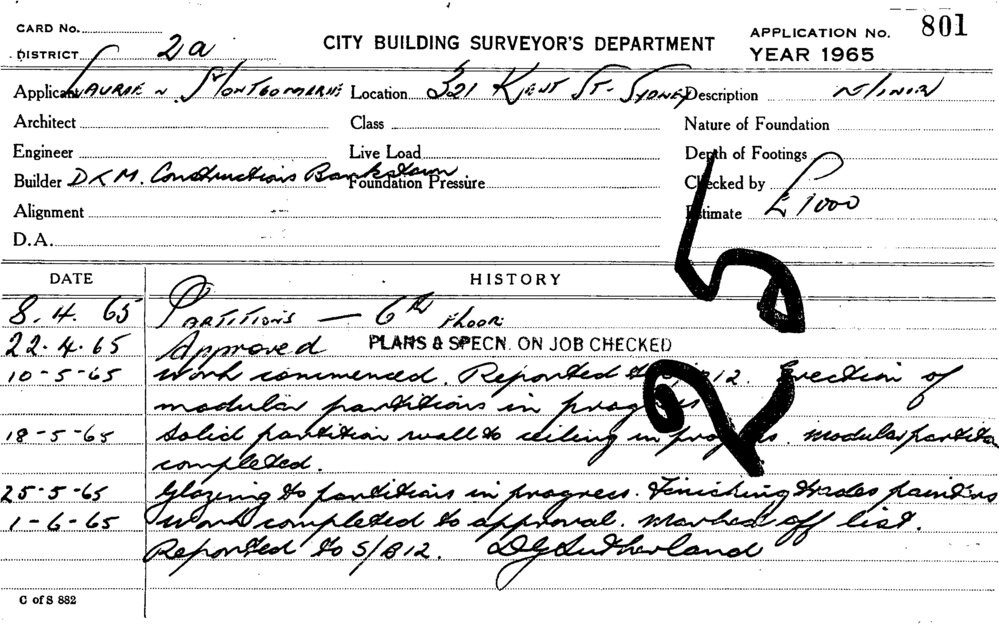 CARD No.
DISTRICT 2a
CITY BUILDING SURVEYOR'S DEPARTMENT
APPLICATION No. 801
YEAR 1965
Applicant LAURIE N. MONTGOMERIE Location 321 KENT ST. SYDNEY Description
Architect Class Nature of Foundation
Engineer Live Load Depth of Footings
Builder D K M. Constructions Bankstown Foundation Pressure Checked by
Alignment Estimate £1000
D.A.
DATE HISTORY
8. 4. 65 PARTITIONS — 6th FLOOR
22. 4. 65 Approved PLANS & SPECN. ON JOB CHECKED
10-5-65 Work commenced. Reported to S/B12. Erection of
modular partitions in progress
18-5-65 Solid partition wall to ceiling in progress. modular partition
completed.
25-5-65 Glazing to partitions in progress. Finishing trades painters
1-6-65 Work completed to approval. Marked off list.
Reported to S/B12. D G Sutherland
C of S 882